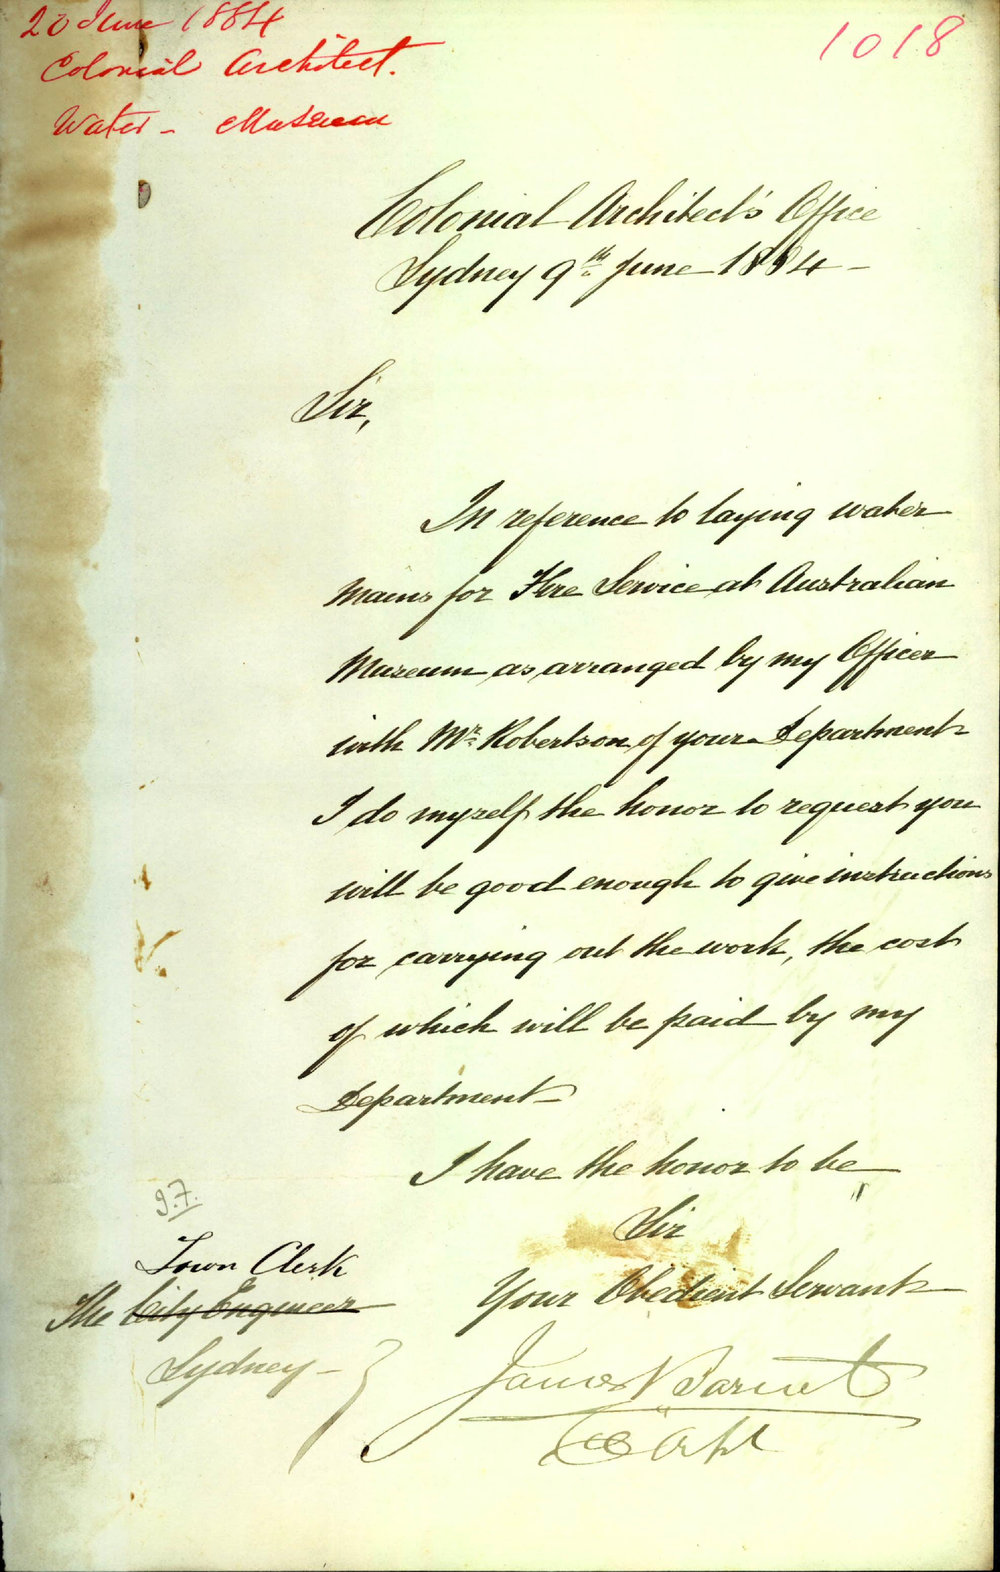 20 June 1884
Colonial Architect.
Water - Museum
1018
Colonial Architect's Office
Sydney 9th June 1884 -
Sir,
In reference to laying water
mains for Fire Service at Australian
Museum as arranged by my Officer
with Mr Robertson of your Department
I do myself the honor to request you
will be good enough to give instructions
for carrying out the work, the cost
of which will be paid by my
Department -
I have the honor to be
Sir
Your Obedient Servant
James Barnet
Col Archt
Town Clerk
The City Engineer
Sydney -